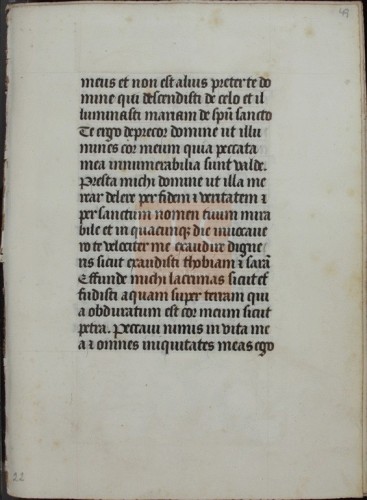 49
meus et non est alius preter te do
mine qui descendisti de celo et il
luminasti mariam de spũ sancto
Te ergo deprecor domine ut illu
mines cor meum quia peccata
mea innumerabilia sunt valde.
Presta michi domine ut illa me
rear delere per fidem ⁊ veritatem ⁊
per sanctum nomen tuum mira
bile et in quacunq; die invocave
ro te velociter me exaudire digne
ris sicut exaudisti thobiam ⁊ sarã
Effunde michi lacrimas sicut ef
fudisti aquam super terram qui
a obduratum est cor meum sicut
petra. Peccavi nimis in vita me
a ⁊ omnes iniquitates meas ego
22